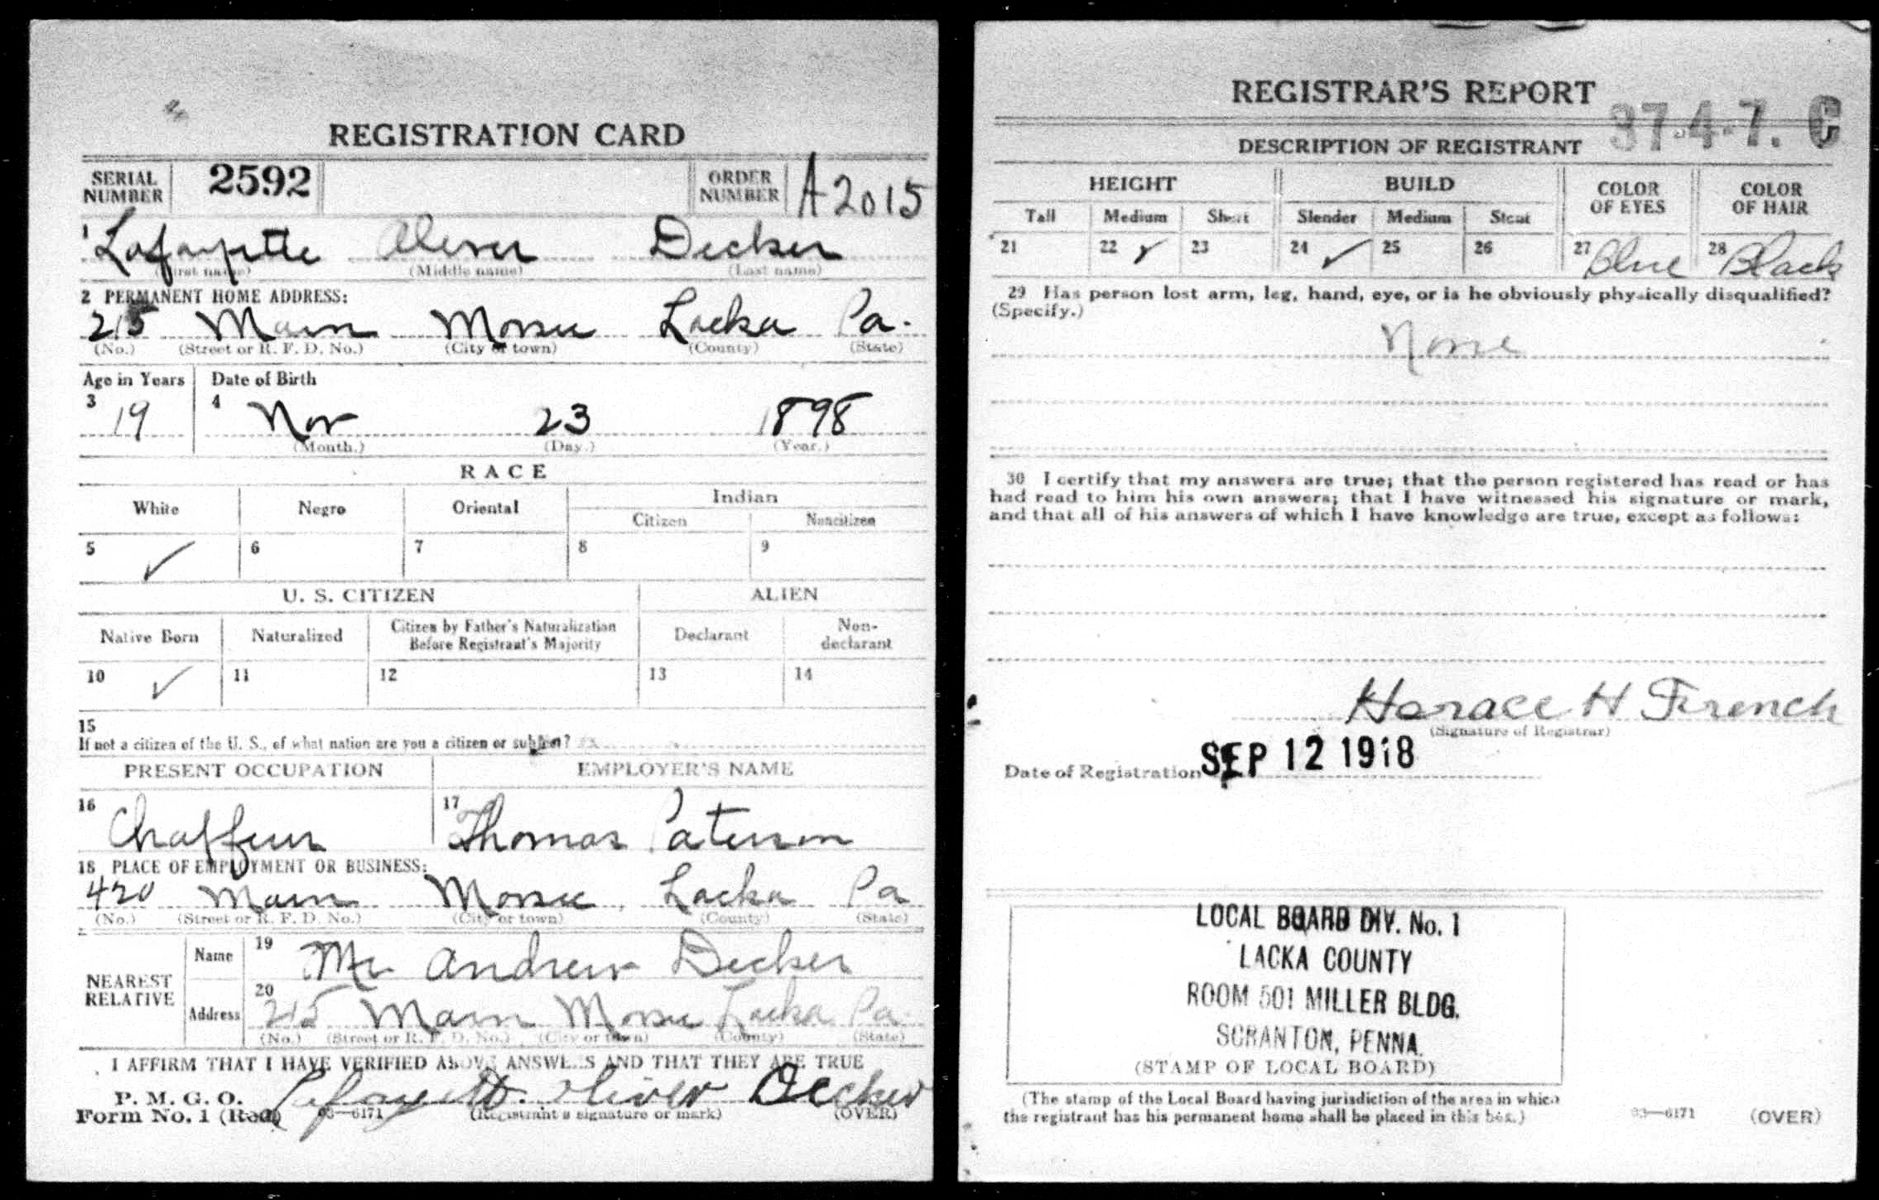 REGISTRATION CARD
SERIAL NUMBER 2592 ORDER NUMBER A2015
1 Lafayette Oliver Decker
(First name) (Middle name) (Last name)
2 PERMANENT HOME ADDRESS:
215 Main Moosic Lacka Pa.
(No.) (Street or R. F. D. No.) (City or town) (County) (State)
Age in Years Date of Birth
3 19 4 Nov 23 1898
(Month.) (Day.) (Year.)
RACE
White Negro Oriental Indian
Citizen Noncitizen
5 ✓ 6 7 8 9
U. S. CITIZEN ALIEN
Native Born Naturalized Citizen by Father's Naturalization Before Registrant's Majority Declarant Non-declarant
10 ✓ 11 12 13 14
15
If not a citizen of the U. S., of what nation are you a citizen or subject?
PRESENT OCCUPATION EMPLOYER'S NAME
16 Chaffeur 17 Thomas Paterson
18 PLACE OF EMPLOYMENT OR BUSINESS:
420 Main Moosic, Lacka Pa
(No.) (Street or R. F. D. No.) (City or town) (County) (State)
NEAREST RELATIVE
Name 19 Mr Andrew Decker
Address 20 215 Main Moosic Lacka Pa.
(No.) (Street or R. F. D. No.) (City or town) (County) (State)
I AFFIRM THAT I HAVE VERIFIED ABOVE ANSWERS AND THAT THEY ARE TRUE
P. M. G. O.
Form No. 1 (Red) 03—6171 Lafayett. Oliver Decker
(Registrant's signature or mark) (OVER)
REGISTRAR'S REPORT
37-4-7. C
DESCRIPTION OF REGISTRANT
HEIGHT BUILD COLOR OF EYES COLOR OF HAIR
Tall Medium Short Slender Medium Stout
21 22 ✓ 23 24 ✓ 25 26 27 Blue 28 Black
29 Has person lost arm, leg, hand, eye, or is he obviously physically disqualified?
(Specify.)
None
30 I certify that my answers are true; that the person registered has read or has
had read to him his own answers; that I have witnessed his signature or mark,
and that all of his answers of which I have knowledge are true, except as follows:
Horace H French
(Signature of Registrar)
Date of Registration SEP 12 1918
LOCAL BOARD DIV. No. 1
LACKA COUNTY
ROOM 501 MILLER BLDG.
SCRANTON, PENNA.
(STAMP OF LOCAL BOARD)
(The stamp of the Local Board having jurisdiction of the area in which
the registrant has his permanent home shall be placed in this box.)
03—6171 (OVER)